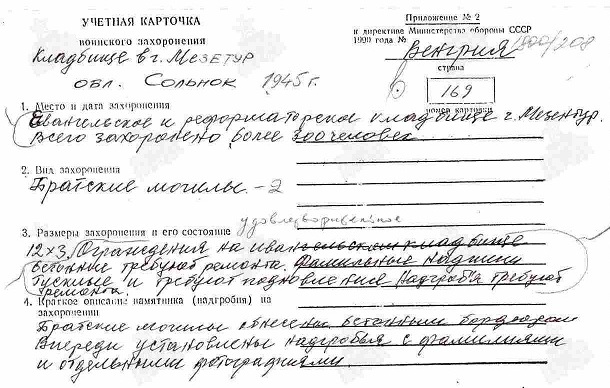 УЧЕТНАЯ КАРТОЧКА
воинского захоронения
Кладбище в г. Мезетур
обл. Сольнок 1945 г.
Приложение № 2
к директиве Министерства обороны СССР
1990 года №
Венгрия /208
страна
169
номер карточки
1. Место и дата захоронения
Евангельское и реформаторское кладбище г. Мезентур.
Всего захоронено более 300 человек
2. Вид захоронения
Братские могилы. – 2
удовлетворительное
3. Размеры захоронения и его состояние
12×3. Ограждения на евангельском кладбище
бетонние требуют ремонта. Фамильные надписи
тусклые и требуют подновления Надгробья требуют
ремонта
4. Краткое описание памятника (надгробия) на
захоронении
Братские могилы обнесены бетонным бордюром
Впереди установлены надгробья с фамилиями
и отдельными фотографиями.